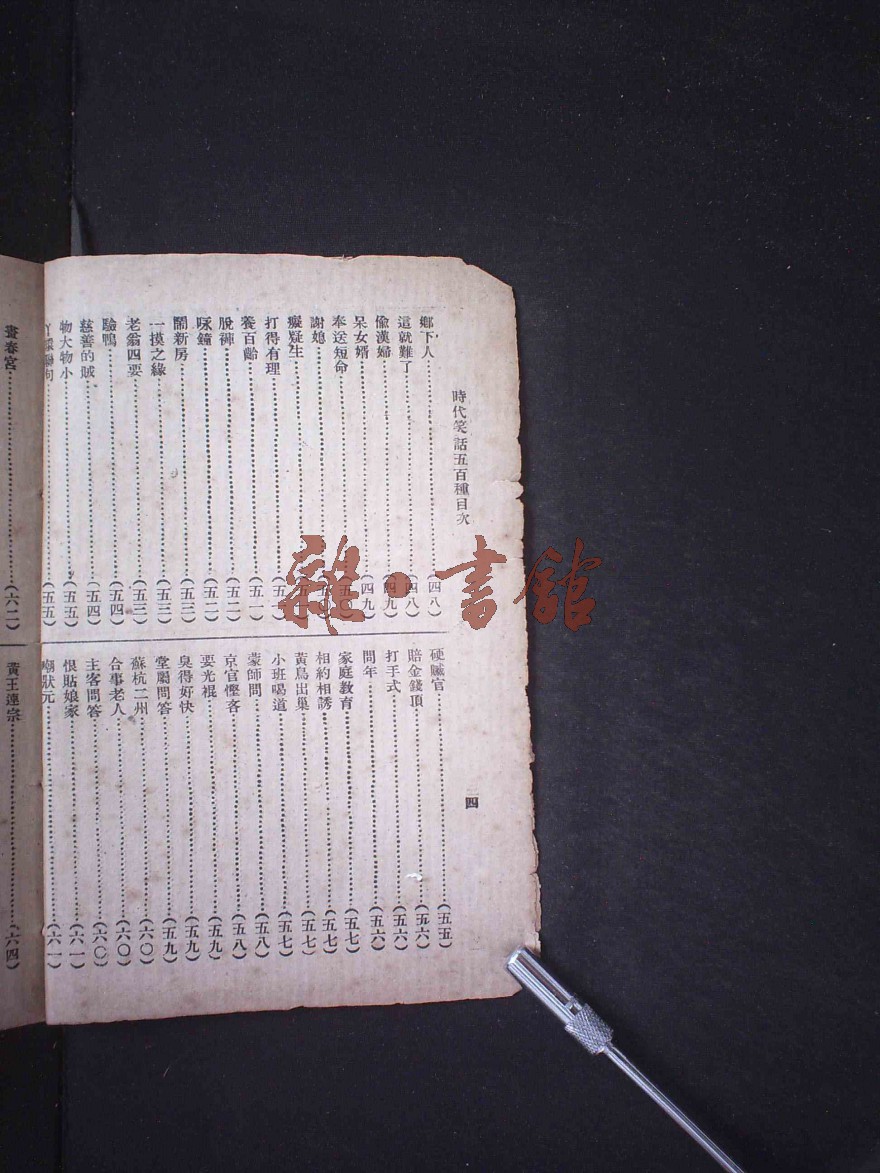 時代笑話五百種目次
四
鄉下人（四八）
這就難了（四八）
偷漢婦（四九）
呆女婿（四九）
奉送短命（五〇）
謝媳
癡疑生
打得有理
養百齡（五一）
脫褲（五二）
咏鐘（五二）
鬧新房（五三）
一摸之緣（五三）
老翁四要（五三）
驗鴨（五四）
慈善的賊（五四）
物大物小（五五）
句（五五）
硬贓官（五五）
賠金錢頂（五六）
打手式（五六）
問年（五六）
家庭教育（五七）
相約相誘（五七）
黃鳥出巢（五七）
小班喝道（五七）
蒙師問（五八）
京官慳客（五八）
要光棍（五九）
臭得好快（五九）
堂屬問答（五九）
蘇杭二州（六〇）
合事老人（六〇）
主客問答（六〇）
恨貼娘家（六一）
嘲狀元（六一）
畫春宮（六二）
黃王連宗（六四）
雜·書館